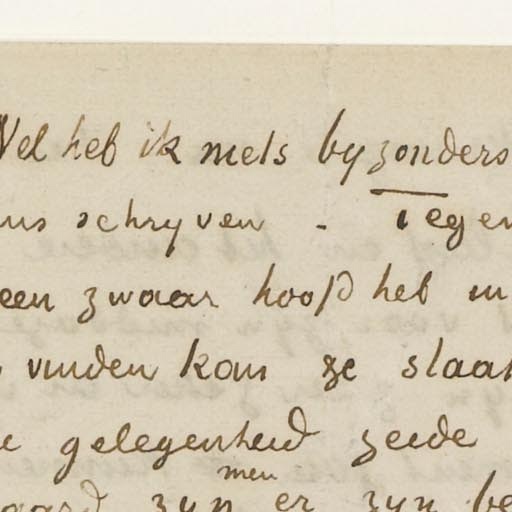 Wel heb ik niets byzonders
ens schryven - Tegen
een zwaar hoofd heb en
vinden kan ze slaan
gelegenheid zeide
men
zyn er zyn be